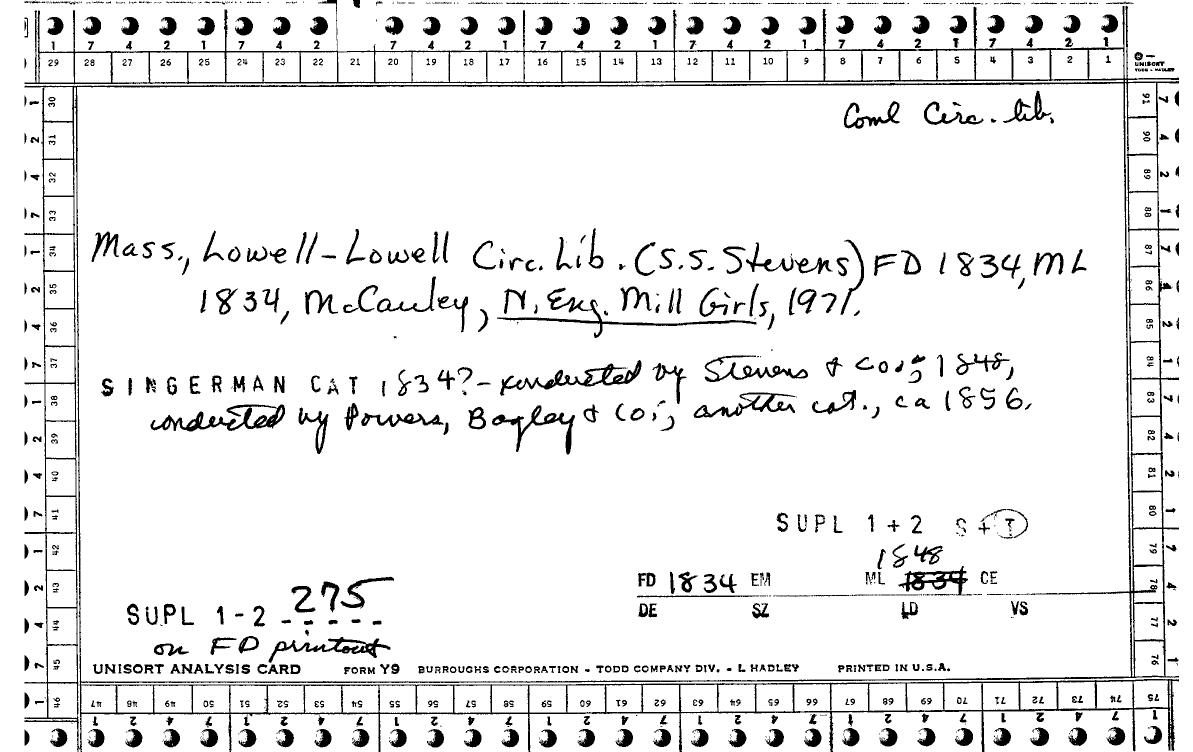 1 7 4 2 1 7 4 2 7 4 2 1 7 4 2 1 7 4 2 1 7 4 2 1 7 4 2 1
29 28 27 26 25 24 23 22 21 20 19 18 17 16 15 14 13 12 11 10 9 8 7 6 5 4 3 2 1
UNISORT
TODD - HADLEY
Coml Circ. lib.
Mass., Lowell-Lowell Circ. Lib. (S.S. Stevens) FD 1834, ML
1834, McCauley, N. Eng. Mill Girls, 1971.
SINGERMAN CAT 1834?- conducted by Stevens & Co.; 1848,
conducted by Powers, Bagley & Co.; another cat., ca 1856.
SUPL 1+2 S+I
1848
FD 1834 EM ML 1834 CE
DE SZ LD VS
SUPL 1-2 275
on FD printout
UNISORT ANALYSIS CARD FORM Y9 BURROUGHS CORPORATION - TODD COMPANY DIV. - L HADLEY PRINTED IN U.S.A.
30 31 32 33 34 35 36 37 38 39 40 41 42 43 44 45 46
91 90 89 88 87 86 85 84 83 82 81 80 79 78 77 76 75
47 48 49 50 51 52 53 54 55 56 57 58 59 60 61 62 63 64 65 66 67 68 69 70 71 72 73 74